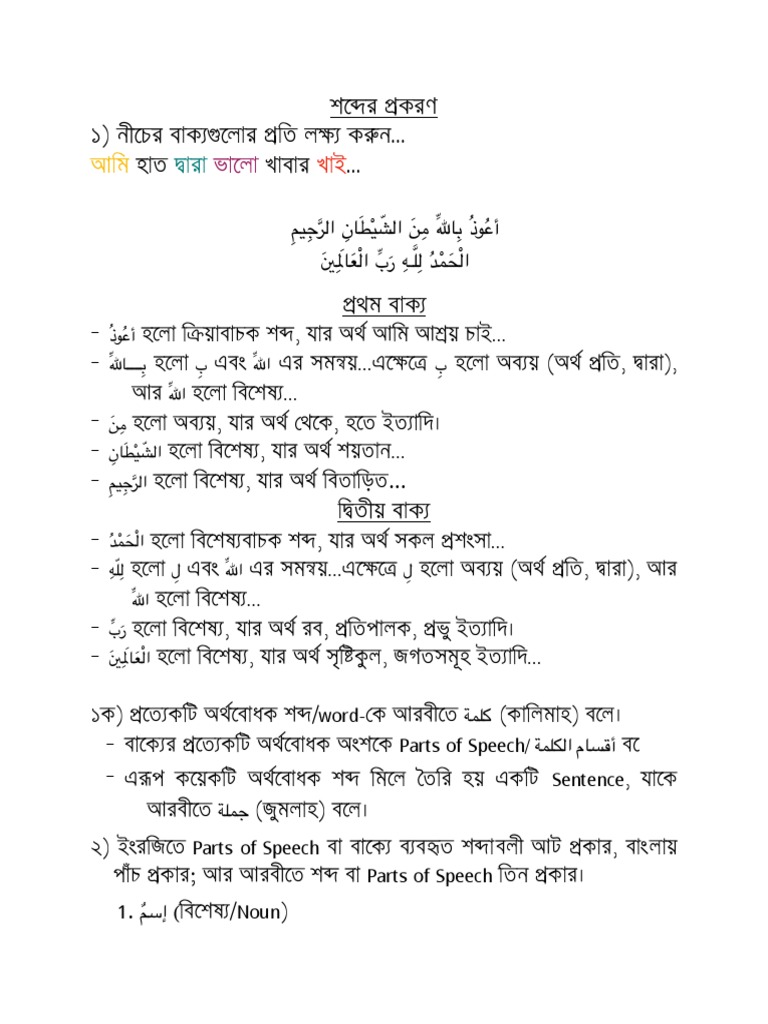 শব্দের প্রকরণ
১) নীচের বাক্যগুলোর প্রতি লক্ষ্য করুন...
আমি হাত দ্বারা ভালো খাবার খাই...
أعُوذُ بِاللهِّ مِنَ الشّيْطَانِ الرَّجِيمِ
الْحَمْدُ لِلَّـهِ رَبِّ الْعَالَمِينَ
প্রথম বাক্য
- أعُوذُ হলো ক্রিয়াবাচক শব্দ, যার অর্থ আমি আশ্রয় চাই...
- بِـــاللهِّ হলো بِ এবং اللهِّ এর সমন্বয়...এক্ষেত্রে بِ হলো অব্যয় (অর্থ প্রতি, দ্বারা),
আর اللهِّ হলো বিশেষ্য...
- مِنَ হলো অব্যয়, যার অর্থ থেকে, হতে ইত্যাদি।
- الشّيْطَانِ হলো বিশেষ্য, যার অর্থ শয়তান...
- الرَّجِيمِ হলো বিশেষ্য, যার অর্থ বিতাড়িত...
দ্বিতীয় বাক্য
- الْحَمْدُ হলো বিশেষ্যবাচক শব্দ, যার অর্থ সকল প্রশংসা...
- لِلّهِ হলো لِ এবং اللهِّ এর সমন্বয়...এক্ষেত্রে لِ হলো অব্যয় (অর্থ প্রতি, দ্বারা), আর
اللهِّ হলো বিশেষ্য...
- رَبِّ হলো বিশেষ্য, যার অর্থ রব, প্রতিপালক, প্রভু ইত্যাদি।
- الْعَالَمِينَ হলো বিশেষ্য, যার অর্থ সৃষ্টিকুল, জগতসমূহ ইত্যাদি...
১ক) প্রত্যেকটি অর্থবোধক শব্দ/word-কে আরবীতে كلمة (কালিমাহ) বলে।
- বাক্যের প্রত্যেকটি অর্থবোধক অংশকে Parts of Speech/ أقسام الكلمة বে
- এরূপ কয়েকটি অর্থবোধক শব্দ মিলে তৈরি হয় একটি Sentence, যাকে
আরবীতে جملة (জুমলাহ) বলে।
২) ইংরজিতে Parts of Speech বা বাক্যে ব্যবহৃত শব্দাবলী আট প্রকার, বাংলায়
পাঁচ প্রকার; আর আরবীতে শব্দ বা Parts of Speech তিন প্রকার।
1. إسمٌ (বিশেষ্য/Noun)